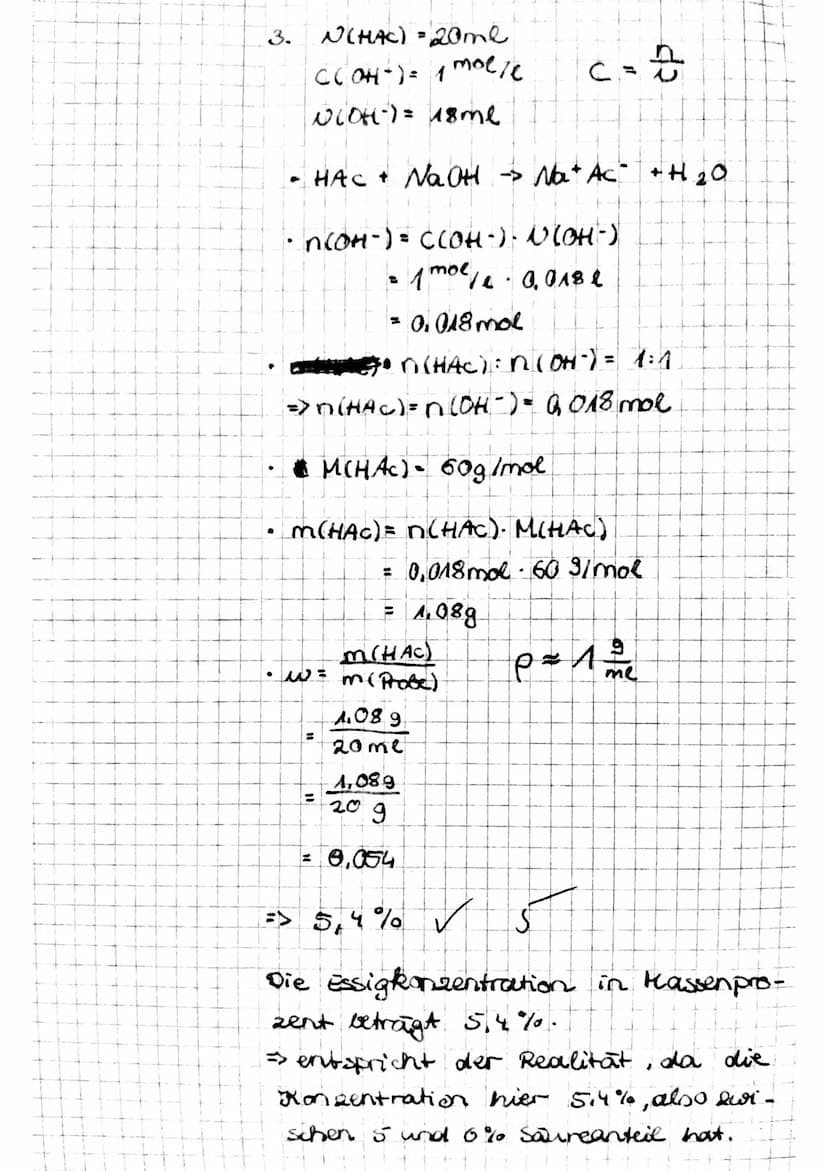 3. V(HAc) = 20ml
C(OH⁻) = 1 mol/l    C = n/V
V(OH⁻) = 18ml
• HAc + NaOH -> Na⁺Ac⁻ + H₂O
• n(OH⁻) = C(OH⁻) · V(OH⁻)
= 1 mol/l · 0,018 l
= 0,018 mol
• n(HAc) : n(OH⁻) = 1:1
=> n(HAc) = n(OH⁻) = 0,018 mol
• M(HAc) = 60g/mol
• m(HAc) = n(HAc) · M(HAc)
= 0,018mol · 60 g/mol
= 1,08g
• w = m(HAc)/m(Probe)    ρ ≈ 1 g/ml
= 1,08 g/20 ml
= 1,08g/20 g
= 0,054
=> 5,4% ✓ 5
Die Essigkonzentration in Massenpro-
zent beträgt 5,4%.
=> entspricht der Realität, da die
Konzentration hier 5,4%, also zwi-
schen 5 und 6% Säureanteil hat.